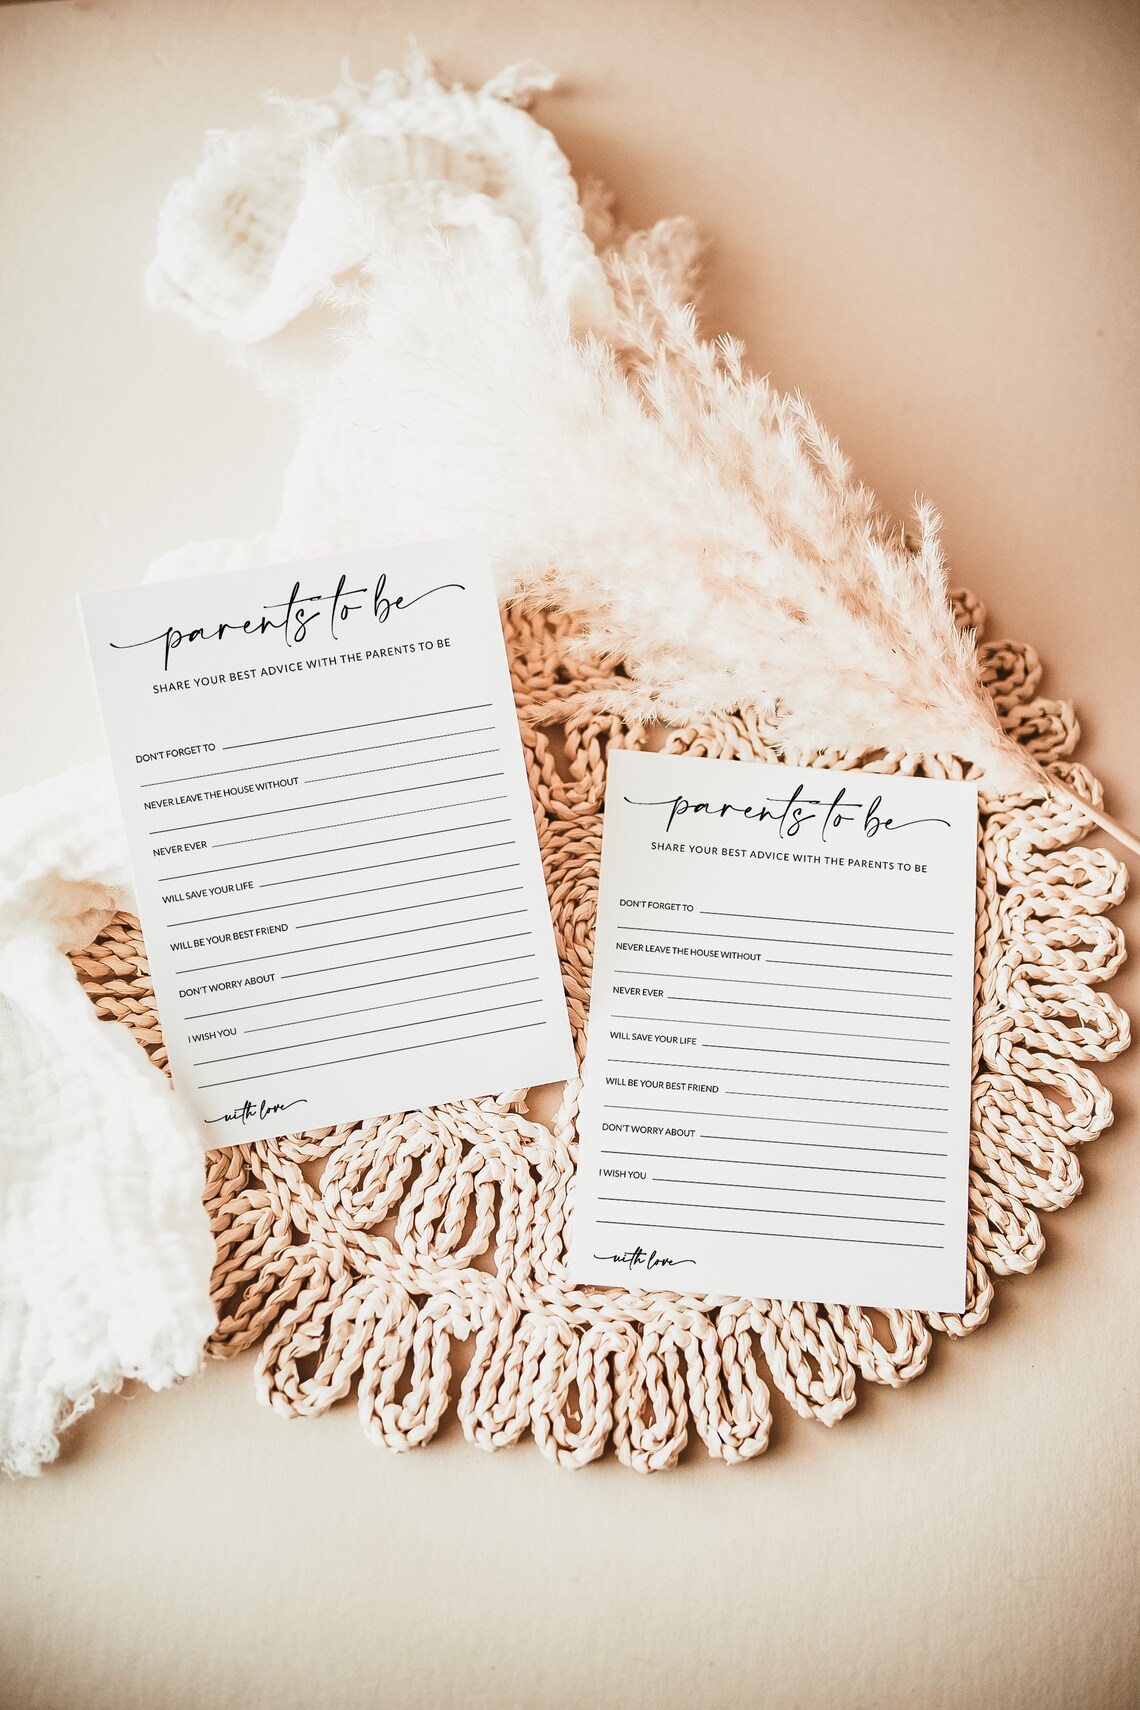 parents to be
SHARE YOUR BEST ADVICE WITH THE PARENTS TO BE
DON'T FORGET TO
NEVER LEAVE THE HOUSE WITHOUT
NEVER EVER
WILL SAVE YOUR LIFE
WILL BE YOUR BEST FRIEND
DON'T WORRY ABOUT
I WISH YOU
with love
parents to be
SHARE YOUR BEST ADVICE WITH THE PARENTS TO BE
DON'T FORGET TO
NEVER LEAVE THE HOUSE WITHOUT
NEVER EVER
WILL SAVE YOUR LIFE
WILL BE YOUR BEST FRIEND
DON'T WORRY ABOUT
I WISH YOU
with love